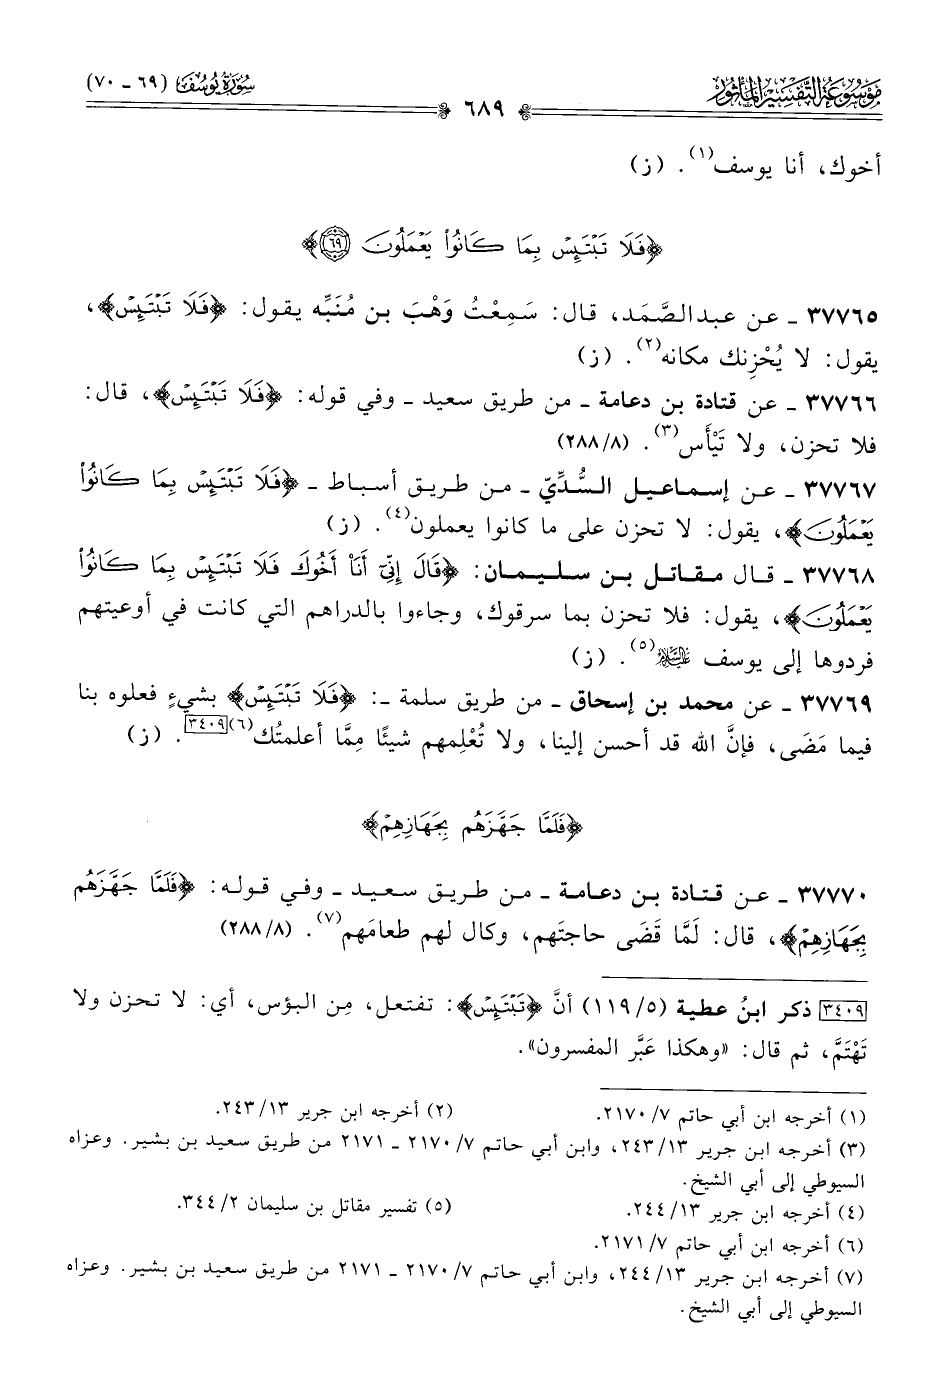 موسوعة التفسير المأثور
سورة يوسف (٦٩ - ٧٠)
٦٨٩
أخوك، أنا يوسف(١). (ز)
﴿فَلَا تَبْتَئِسْ بِمَا كَانُوا۟ يَعْمَلُونَ ٦٩﴾
٣٧٧٦٥ - عن عبدالصَّمَد، قال: سَمِعْتُ وَهْبَ بن مُنَبِّه يقول: ﴿فَلَا تَبْتَئِسْ﴾،
يقول: لا يُحْزِنك مكانه(٢). (ز)
٣٧٧٦٦ - عن قتادة بن دعامة - من طريق سعيد - وفي قوله: ﴿فَلَا تَبْتَئِسْ﴾، قال:
فلا تحزن، ولا تَيْأَس(٣). (٢٨٨/٨)
٣٧٧٦٧ - عن إسماعيل السُّدِّيّ - من طريق أسباط - ﴿فَلَا تَبْتَئِسْ بِمَا كَانُوا۟
يَعْمَلُونَ﴾، يقول: لا تحزن على ما كانوا يعملون(٤). (ز)
٣٧٧٦٨ - قال مقاتل بن سليمان: ﴿قَالَ إِنِّىٓ أَنَا۠ أَخُوكَ فَلَا تَبْتَئِسْ بِمَا كَانُوا۟
يَعْمَلُونَ﴾، يقول: فلا تحزن بما سرقوك، وجاءوا بالدراهم التي كانت في أوعيتهم
فردوها إلى يوسف عليه السلام(٥). (ز)
٣٧٧٦٩ - عن محمد بن إسحاق - من طريق سلمة -: ﴿فَلَا تَبْتَئِسْ﴾ بشيءٍ فعلوه بنا
فيما مَضَى، فإنَّ الله قد أحسن إلينا، ولا تُعْلِمهم شيئًا مِمَّا أعلمتُك(٦)[٣٤٠٩]. (ز)
﴿فَلَمَّا جَهَّزَهُم بِجَهَازِهِمْ﴾
٣٧٧٧٠ - عن قتادة بن دعامة - من طريق سعيد - وفي قوله: ﴿فَلَمَّا جَهَّزَهُم
بِجَهَازِهِمْ﴾، قال: لَمَّا قَضَى حاجتَهم، وكال لهم طعامَهم(٧). (٢٨٨/٨)
[٣٤٠٩] ذكر ابنُ عطية (١١٩/٥) أنَّ ﴿تَبْتَئِسْ﴾: تفتعل، مِن البؤس، أي: لا تحزن ولا
تَهْتَمَّ، ثم قال: «وهكذا عَبَّر المفسرون».
(١) أخرجه ابن أبي حاتم ٢١٧٠/٧.
(٢) أخرجه ابن جرير ٢٤٣/١٣.
(٣) أخرجه ابن جرير ٢٤٣/١٣، وابن أبي حاتم ٢١٧٠/٧ - ٢١٧١ من طريق سعيد بن بشير. وعزاه
السيوطي إلى أبي الشيخ.
(٤) أخرجه ابن جرير ٢٤٤/١٣.
(٥) تفسير مقاتل بن سليمان ٣٤٤/٢.
(٦) أخرجه ابن أبي حاتم ٢١٧١/٧.
(٧) أخرجه ابن جرير ٢٤٤/١٣، وابن أبي حاتم ٢١٧٠/٧ - ٢١٧١ من طريق سعيد بن بشير. وعزاه
السيوطي إلى أبي الشيخ.